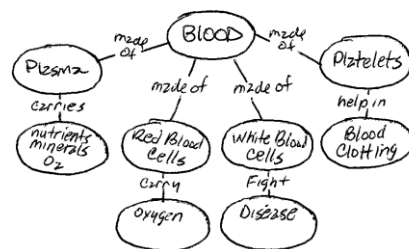 BLOOD
made
of
made
of
Plasma
Platelets
made of
made of
carries
help in
nutrients
minerals
O2
Red Blood
Cells
White Blood
Cells
Blood
Clotting
carry
Fight
Oxygen
Disease